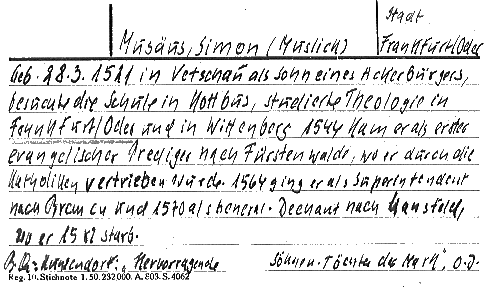 Stadt
Musäus, Simon (Muslich) Frankfurt/Oder
Geb. 28.3.1521 in Vetschau als Sohn eines Ackerbürgers,
besuchte die Schule in Kottbus, studierte Theologie in
Frankfurt/Oder und in Wittenberg 1544 kam er als erster
evangelischer Prediger nach Fürstenwalde, wo er durch die
Katholiken vertrieben wurde. 1564 ging er als Superintendent
nach Bremen und 1570 als General-Dechant nach Mansfeld,
wo er 15 starb.
"Hervorragende Söhne u. Töchter der Mark", O.J.
Reg. 10. Stichnote 1. 50. 232000. A. 803. S. 4062